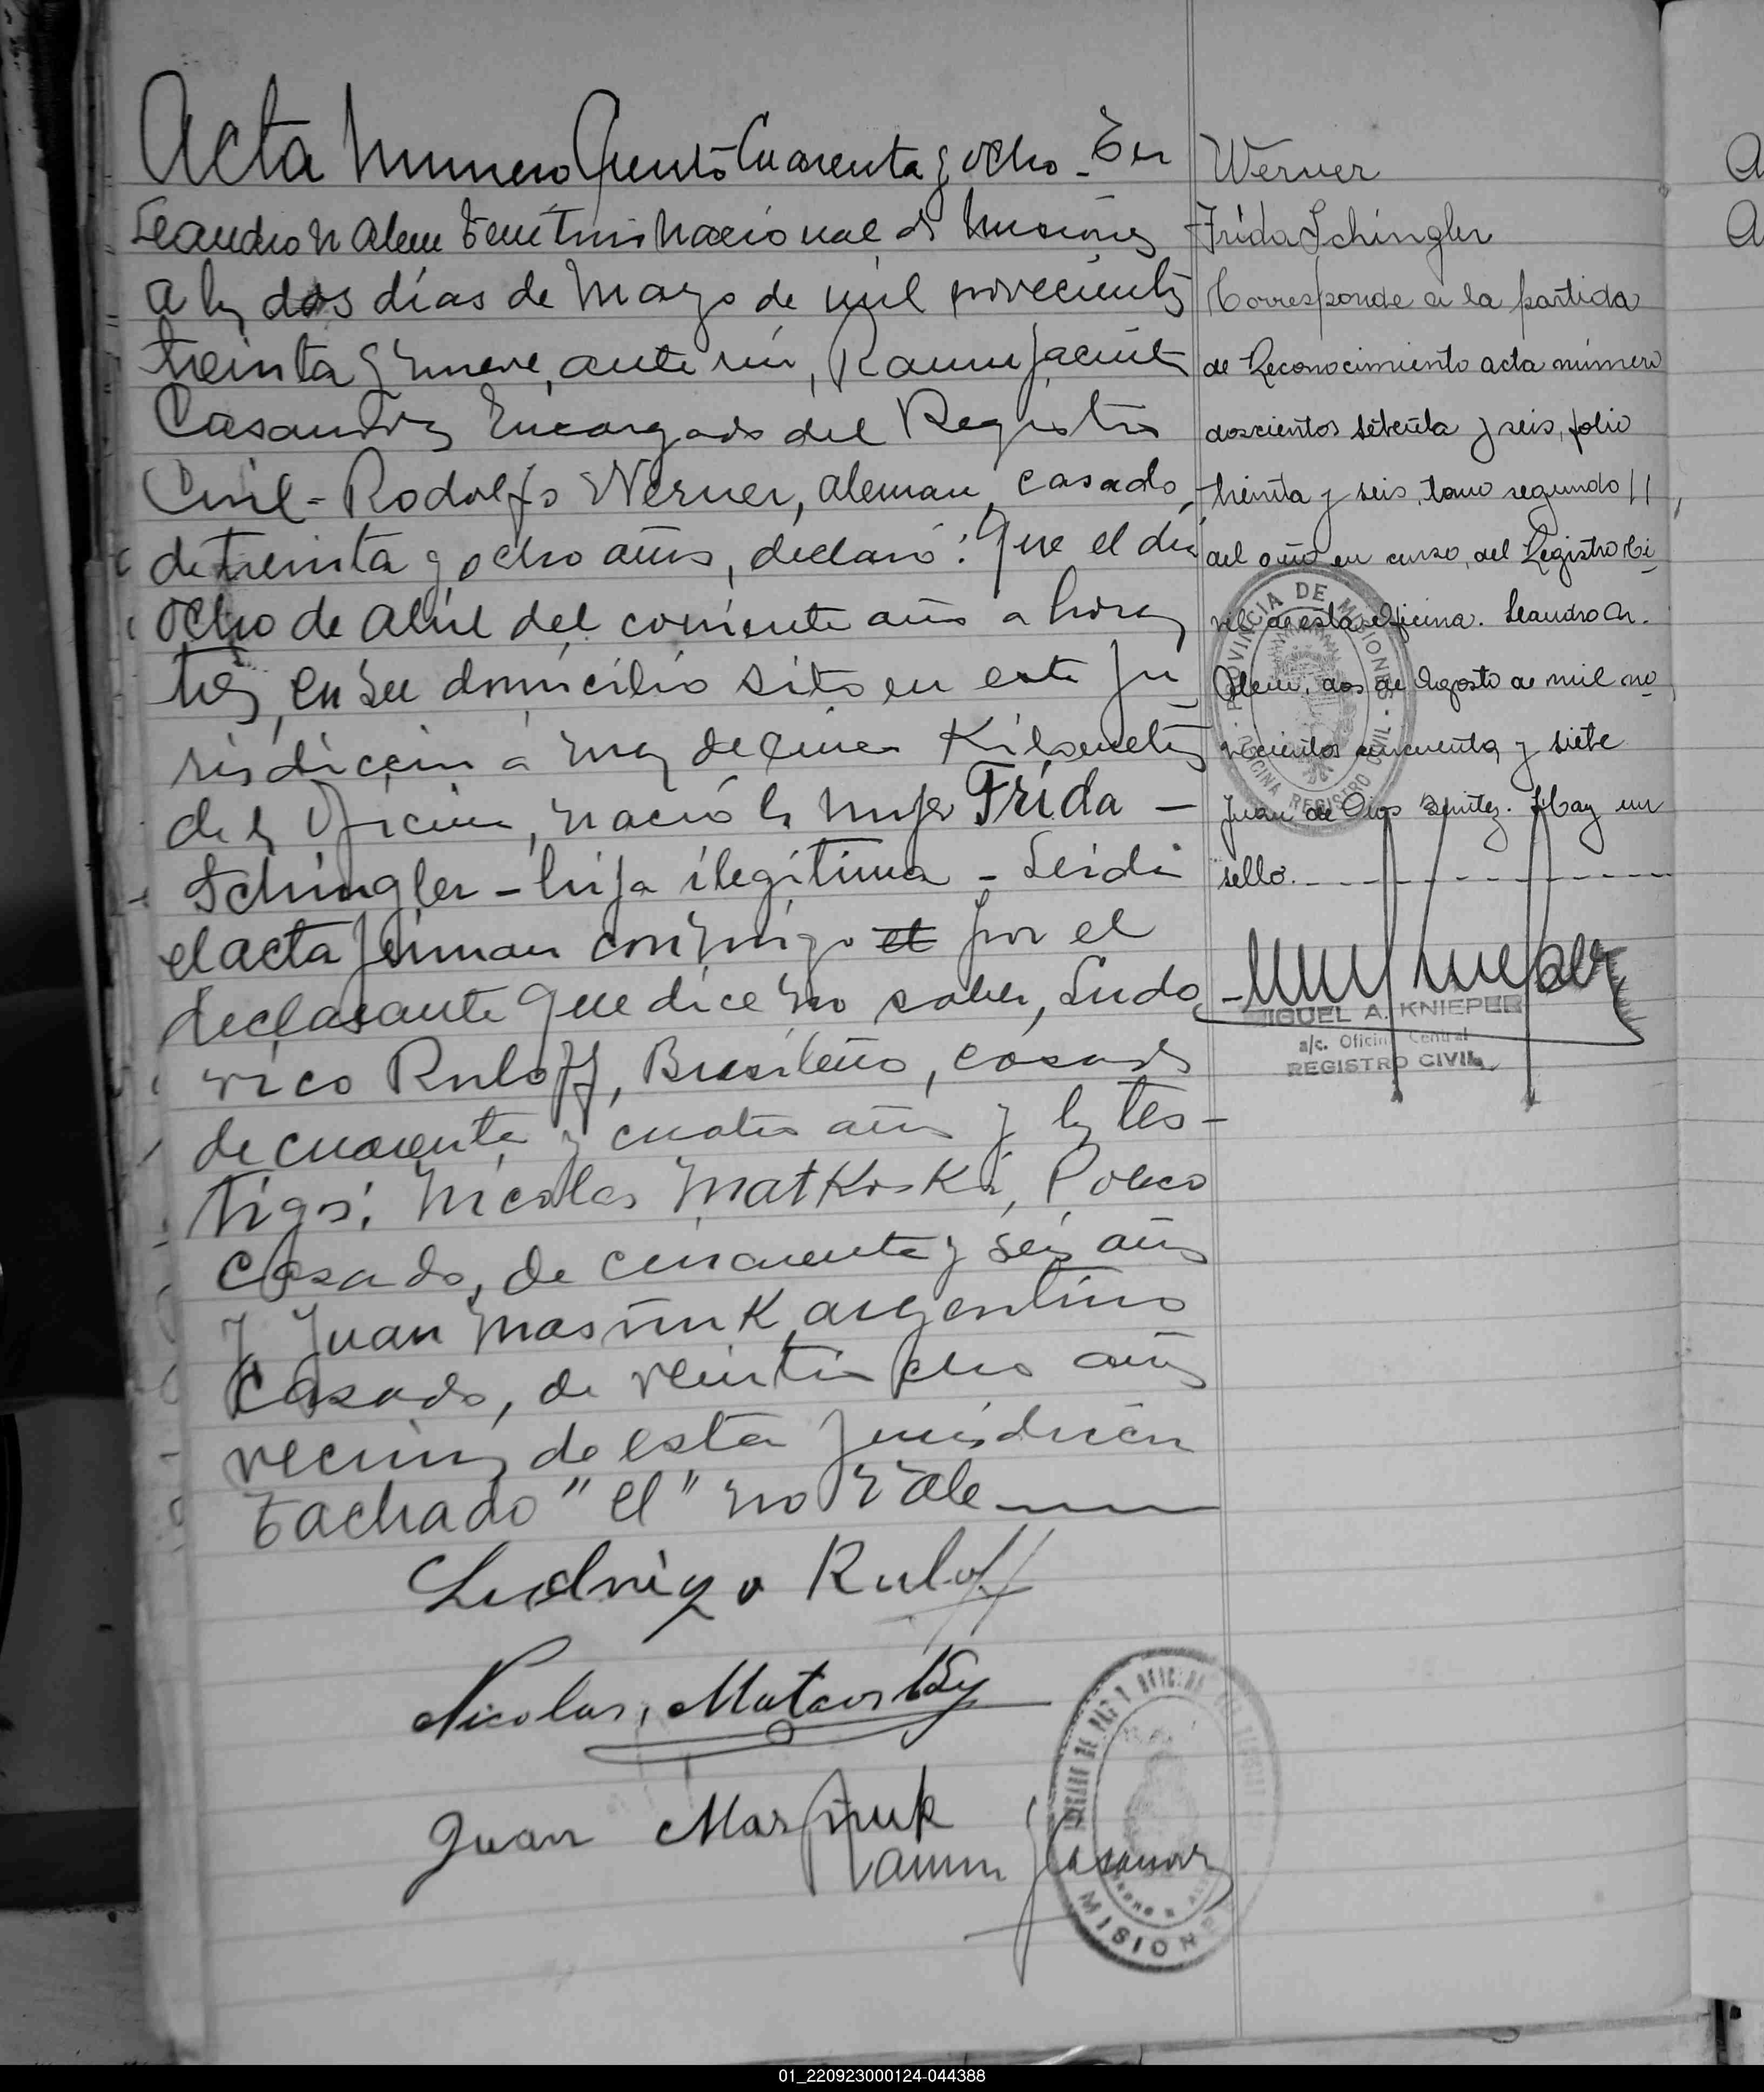 Acta Numero Ciento Cuarenta y ocho - En
Leandro N Alem Territorio Nacional de Misiones
a los dos días de Mayo de mil novecientos
treinta y nueve, ante mí, Ramón Jacinto
Encargado del Registro
Civil - Rodolfo Werner, aleman, casado,
de treinta y ocho años, declaró: Que el día
ocho de Abril del corriente año a horas
tres, en su domicilio sito en este Ju
risdicción a de Kilometros
de la Oficina, nació la mujer Frida —
Schingler - hija ilegítima - Leida
el acta firman conmigo el por el
declarante que dice no saber, Ludo
vico Ruloff, Brasileño, casado
de cuarenta y cuatro años y los tes-
tigos: Nicolas Matkoski, Polaco
Casado, de cincuenta y seis años
y Juan Masniuk, argentino
Casado, de veintiocho años
vecinos de esta jurisdicción
Tachado "el" no vale
Ludvigo Ruloff
Nicolas Matcosky
Juan Masniuk
Ramon J Casanova
MISIONES
Werner
Frida Schingler
Corresponde a la partida
de Reconocimiento acta número
doscientos setenta y seis, folio
treinta y seis, tomo segundo //
del año en curso, del Registro Ci
vil de esta Oficina. Leandro N.
Alem, dos de Agosto de mil no
vecientos cincuenta y siete
Juan de Dios Benitez. Hay un
sello.
PROVINCIA DE MISIONES
OFICINA REGISTRO CIVIL
MIGUEL A. KNIEPER
a/c. Oficina Central
REGISTRO CIVIL
A
A
01_220923000124-044388